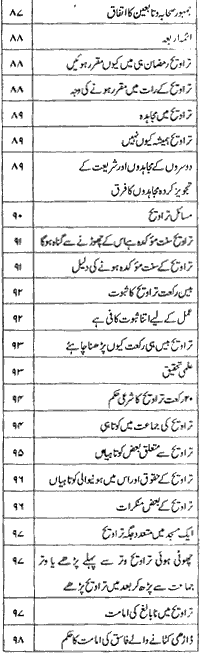 جمہور صحابہ و تابعین کا اتفاق ۸۷
ائمہ اربعہ ۸۸
تراویح رمضان ہی میں کیوں مقرر ہوئیں ۸۸
تراویح کے رات میں مقرر ہونے کی وجہ ۸۸
تراویح میں مجاہدہ ۸۹
تراویح ہمیشہ کیوں نہیں ۸۹
دوسروں کے مجاہدوں اور شریعت کے
تجویز کردہ مجاہدوں کا فرق ۸۹
مسائل تراویح ۹۰
تراویح سنت مؤکدہ ہے اس کے چھوڑنے سے گناہ ہوگا ۹۱
تراویح کے سنت مؤکدہ ہونے کی دلیل ۹۱
بیس رکعت تراویح کا ثبوت ۹۲
عمل کے لیے اتنا ثبوت کافی ہے ۹۲
تراویح بیس ہی رکعت کیوں پڑھنا چاہئے ۹۳
علمی تحقیق ۹۳
۲۰ رکعت تراویح کا شرعی حکم ۹۴
تراویح کی جماعت میں کوتاہی ۹۴
تراویح سے متعلق بعض کوتاہیاں ۹۵
تراویح کے حقوق اور اس میں ہونیوالی کوتاہیاں ۹۶
تراویح کے بعض منکرات ۹۶
ایک مسجد میں متعدد جگہ تراویح ۹۷
چھوٹی ہوئی تراویح وتر سے پہلے پڑھے یا وتر ۹۷
جماعت سے پڑھ کر بعد میں تراویح پڑھے
تراویح میں نابالغ کی امامت ۹۷
ڈاڑھی کٹانے والے فاسق کی امامت کا حکم ۹۸